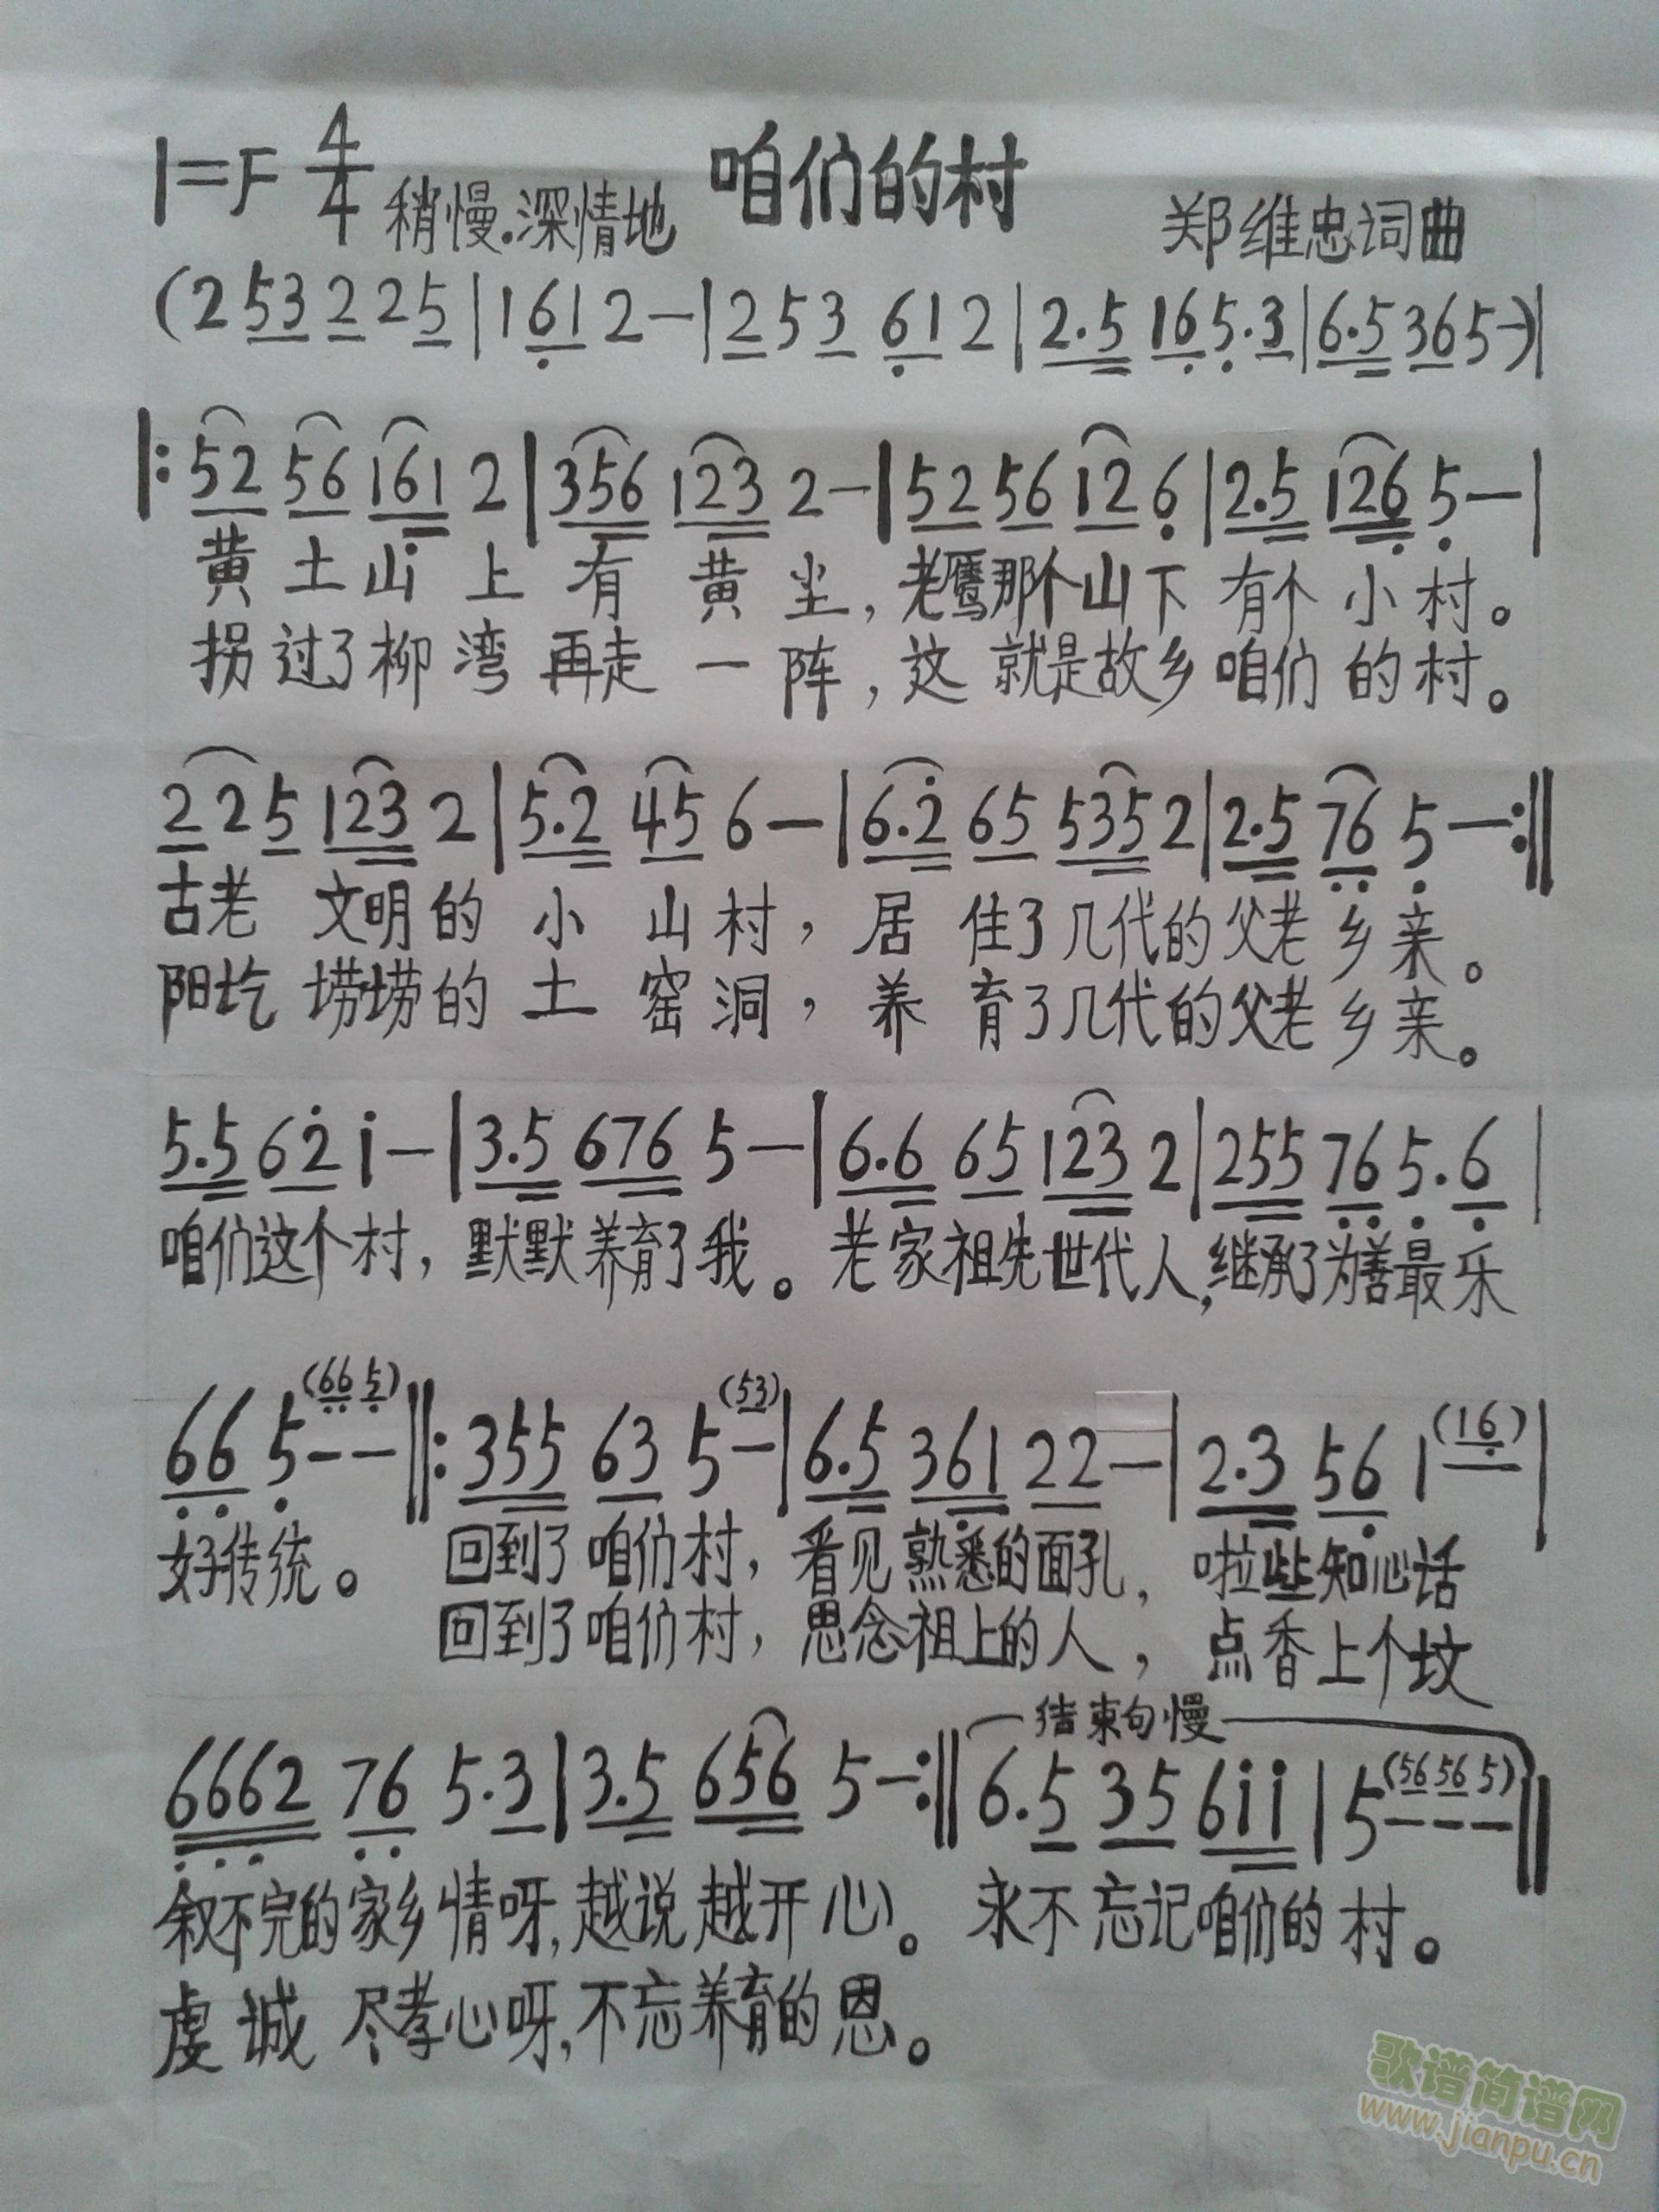 1=F 4/4 稍慢.深情地 咱们的村 郑维忠词曲
(2 53 2 25 | 1 61 2 — | 2 5 3 61 2 | 2.5 16 5.3 | 6.5 36 5 —) |
|: 52 56 161 2 | 356 123 2 — | 52 56 12 6 | 2.5 126 5 — |
黄土山上有黄尘,老鹰那个山下有个小村。
拐过了柳湾再走一阵,这就是故乡咱们的村。
2 2 5 123 2 | 5.2 45 6 — | 6.2 65 535 2 | 2.5 76 5 — :||
古老文明的小山村,居住了几代的父老乡亲。
阳圪塄塄的土窑洞,养育了几代的父老乡亲。
5.5 62 i — | 3.5 676 5 — | 6.6 65 123 2 | 255 76 5.6 |
咱们这个村,默默养育了我。老家祖先世代人,继承了为善最乐
66 5 — — (66 5) ||: 355 63 5 — (53) | 6.5 361 22 — | 2.3 56 1 (16) |
好传统。 回到了咱们村,看见熟悉的面孔,啦些知心话
回到了咱们村,思念祖上的人,点香上个坟
结束句慢
6662 76 5.3 | 3.5 656 5 — :|| 6.5 35 6ii | 5 — — — (56 56 5) ||
叙不完的家乡情呀,越说越开心。永不忘记咱们的村。
虔诚尽孝心呀,不忘养育的恩。
歌谱简谱网
www.jianpu.cn